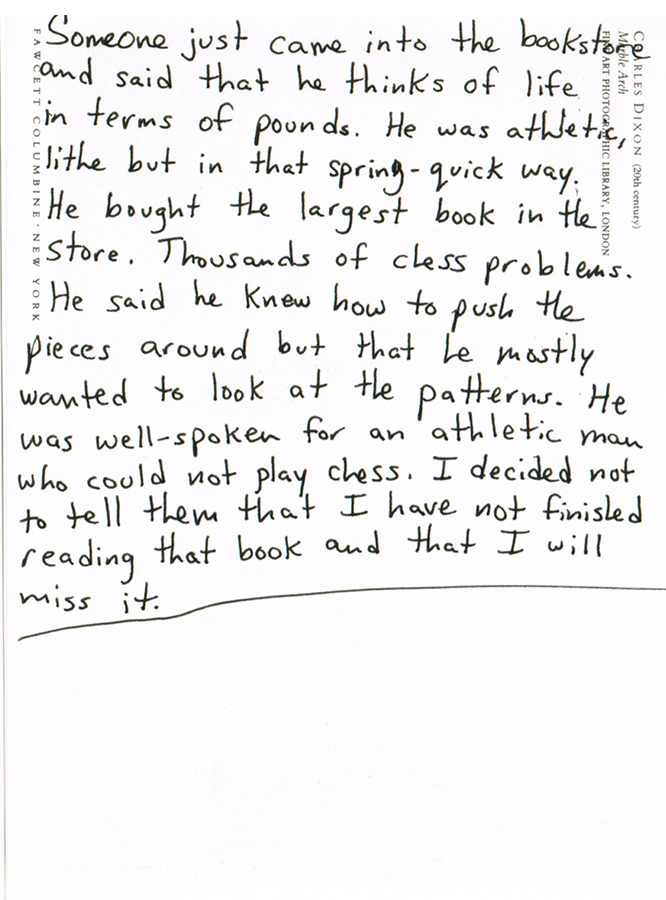 Someone just came into the bookstore
and said that he thinks of life
in terms of pounds. He was athletic,
lithe but in that spring-quick way.
He bought the largest book in the
store. Thousands of chess problems.
He said he knew how to push the
pieces around but that he mostly
wanted to look at the patterns. He
was well-spoken for an athletic man
who could not play chess. I decided not
to tell them that I have not finished
reading that book and that I will
miss it.
FAWCETT COLUMBINE · NEW YORK
CHARLES DIXON (20th century)
Marble Arch
FINE ART PHOTOGRAPHIC LIBRARY, LONDON